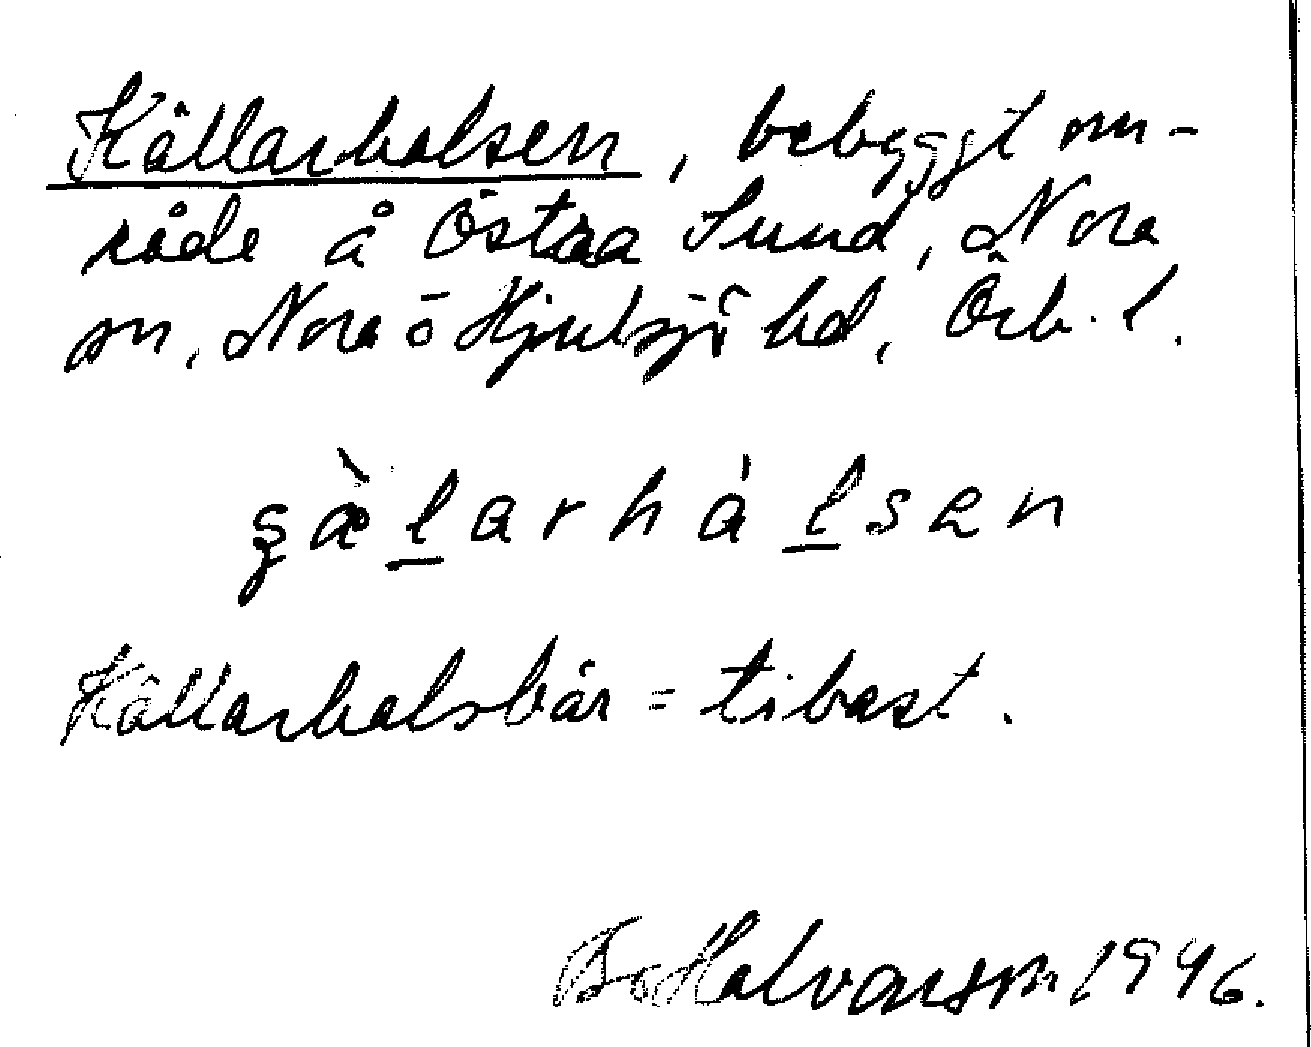 Källarhalsen, bebyggt om-
råde å Östra Sund, Nora
sn, Nora ō Hjulsjö bd, Örb. l.
ȿὰl̲arhál̲sen
Källarhalsbär = tibast.
Bo Halvarson 1946.